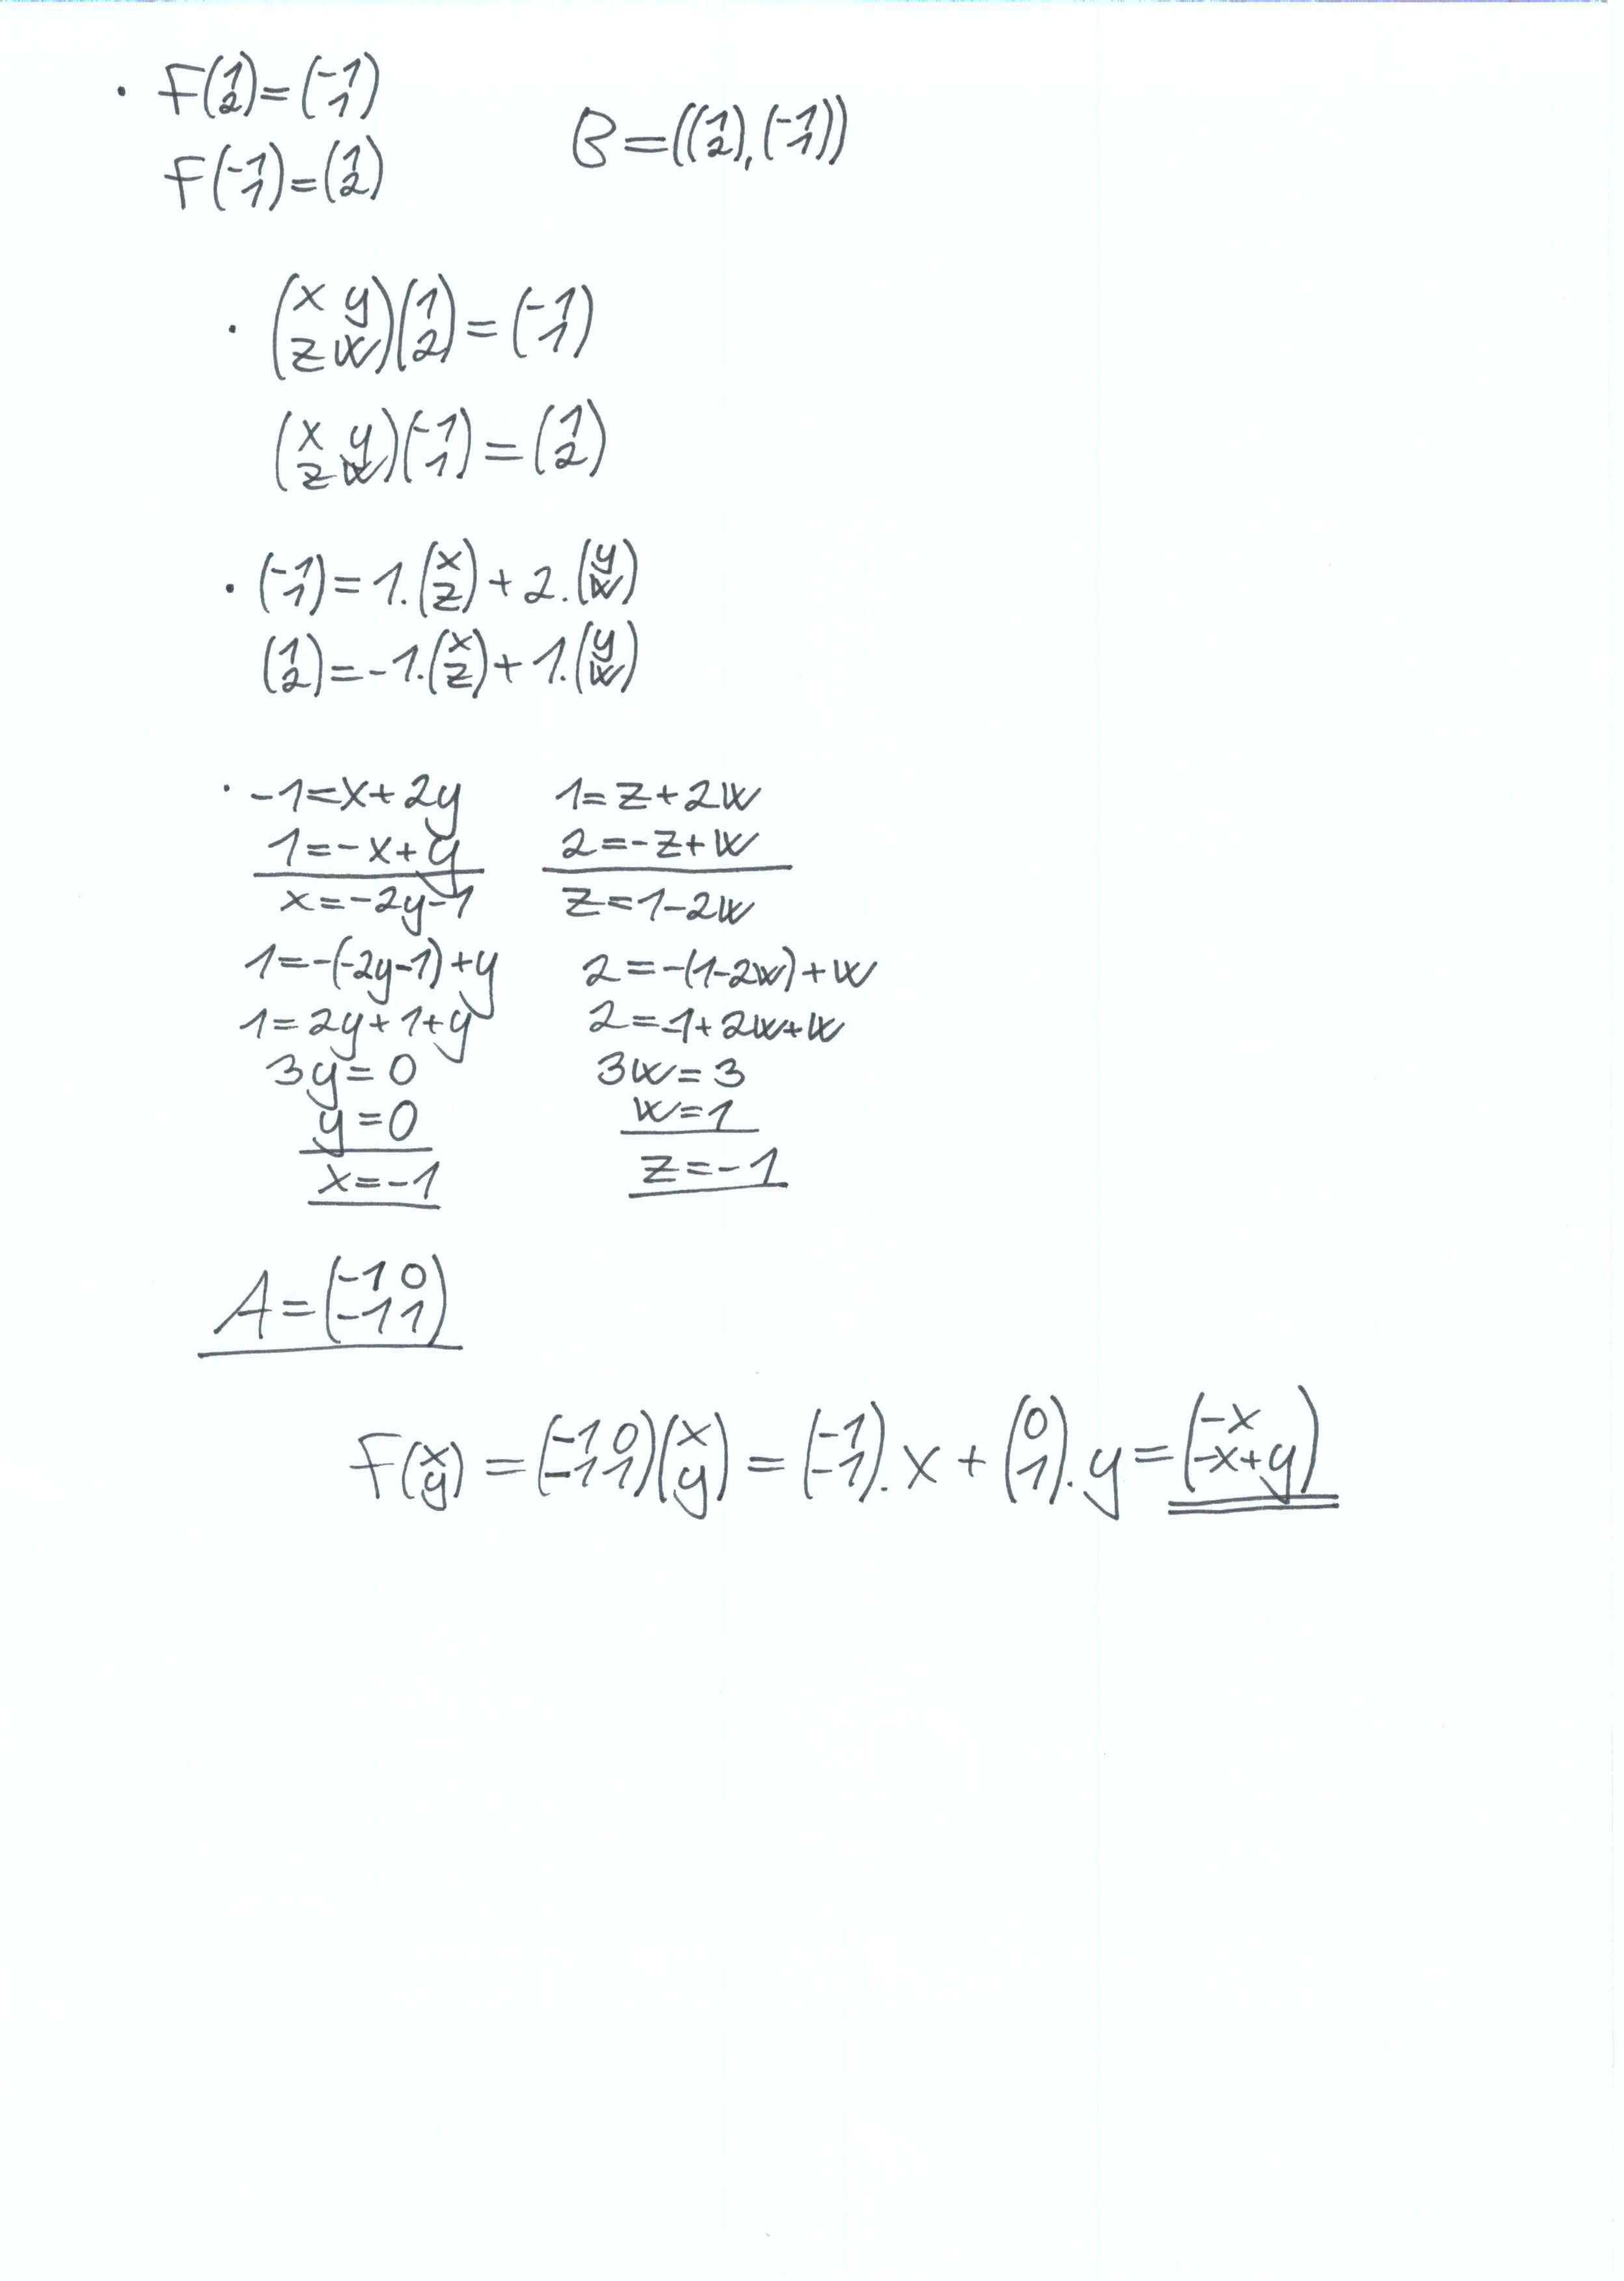 · F(1 2)=(-1 1)
B=((1 2),(-1 1))
F(-1 1)=(1 2)
· (x y z w)(1 2)=(-1 1)
(x y z w)(-1 1)=(1 2)
· (-1 1)=1.(x z)+2.(y w)
(1 2)=-1.(x z)+1.(y w)
· -1=x+2y
1=-x+y
x=-2y-1
1=-(-2y-1)+y
1=2y+1+y
3y=0
y=0
x=-1
1=z+2w
2=-z+w
z=1-2w
2=-(1-2w)+w
2=-1+2w+w
3w=3
w=1
z=-1
A=(-1 0 -1 1)
F(x y)=(-1 0 -1 1)(x y)=(-1 -1).x+(0 1).y=(-x -x+y)